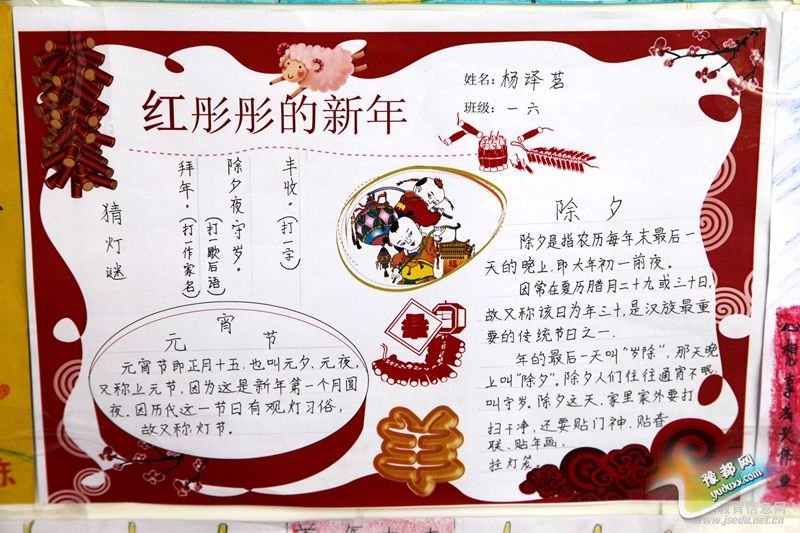 红彤彤的新年
姓名：杨泽茗
班级：一六
猜灯谜
丰收。（打一字）
除夕夜守岁。
（打一歇后语）
拜年。
（打一作家名）
元宵节
元宵节即正月十五，也叫元夕、元夜，
又称上元节，因为这是新年第一个月圆
夜。因历代这一节日有观灯习俗，
故又称灯节。
春
羊
除夕
除夕是指农历每年末最后一
天的晚上，即大年初一前夜。
因常在夏历腊月二十九或三十日，
故又称该日为年三十，是汉族最重
要的传统节日之一。
年的最后一天叫"岁除"，那天晚
上叫"除夕"。除夕人们往往通宵不眠，
叫守岁。除夕这天，家里家外要打
扫干净，还要贴门神、贴春
联、贴年画、
挂灯笼。
心想事成
业
乐
豫都网
yuduxx.com
教育信息网
www.jsedu.net.cn